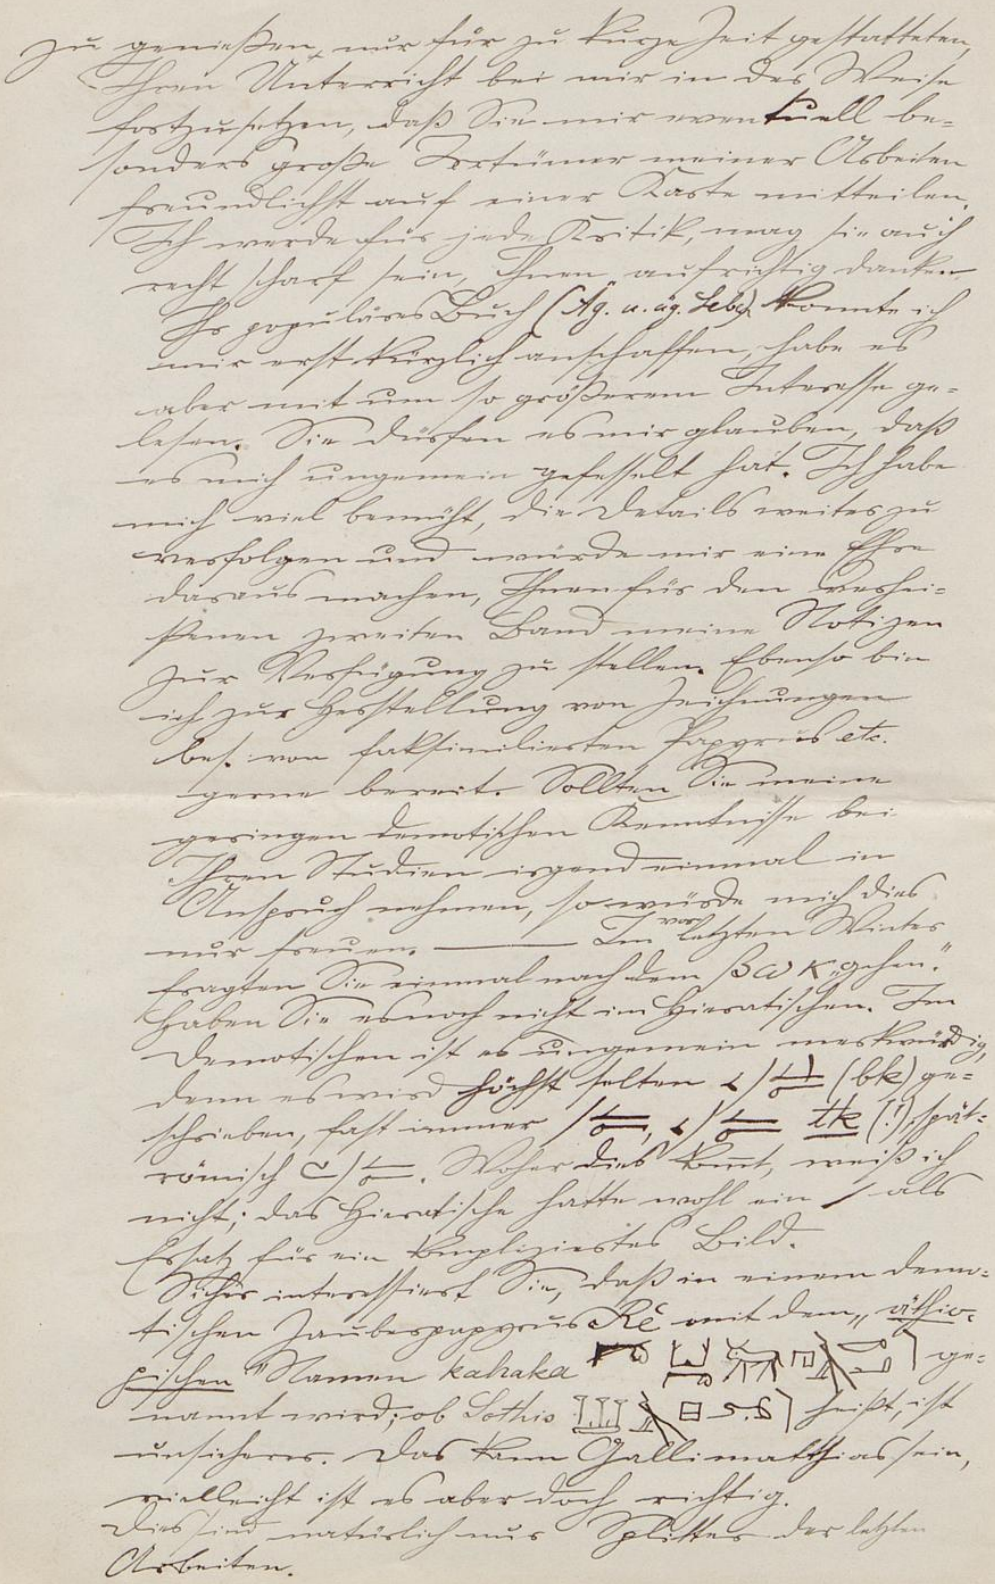 zu genießen, nur für zu kurze Zeit gestatteten,
Ihren Unterricht bei mir in der Weise
fortzusetzen, daß Sie mir eventuell be-
sonders große Irrtümer meiner Arbeiten
freundlichst auf einer Karte mitteilen.
Ich werde für jede Kritik, mag sie auch
recht scharf sein, Ihnen aufrichtig danken.
Ihr populäres Buch (Äg. u. äg. Leb.) konnte ich
mir erst kürzlich anschaffen, habe es
aber mit um so größerem Interesse ge-
lesen. Sie dürfen es mir glauben, daß
es mich ungemein gefesselt hat. Ich habe
mich viel bemüht, die Details weiter zu
verfolgen und würde mir eine Ehre
daraus machen, Ihnen für den verhei-
ßenen zweiten Band meine Notizen
zur Verfügung zu stellen. Ebenso bin
ich zur Herstellung von Zeichnungen
bes. von faksimilierten Papyrus etc.
gerne bereit. Sollten Sie meine
geringen demotischen Kenntnisse bei
Ihren Studien irgend einmal in
Anspruch nehmen, so würde mich dies
nur freuen. — Im vorletzten Winter
fragten Sie einmal nach dem ⲃⲱⲕ „gehen“.
Haben Sie es noch nicht im Hieratischen. Im
Demotischen ist es ungemein merkwürdig,
denn es wird höchst selten (bk) ge-
schrieben, fast immer tk (!), spät-
römisch . Woher dies kommt, weiß ich
nicht; das Hieratische hatte wohl ein als
Ersatz für ein kompliziertes Bild.
Sicher interessiert Sie, daß in einem demo-
tischen Zauberpapyrus Rē mit dem „äthio-
pischen“ Namen kahaka ge-
nannt wird; ob Sothis heißt, ist
unsicherer. Das kann Gallimatthias sein,
vielleicht ist es aber doch richtig.
Dies sind natürlich nur Splitter der letzten
Arbeiten.